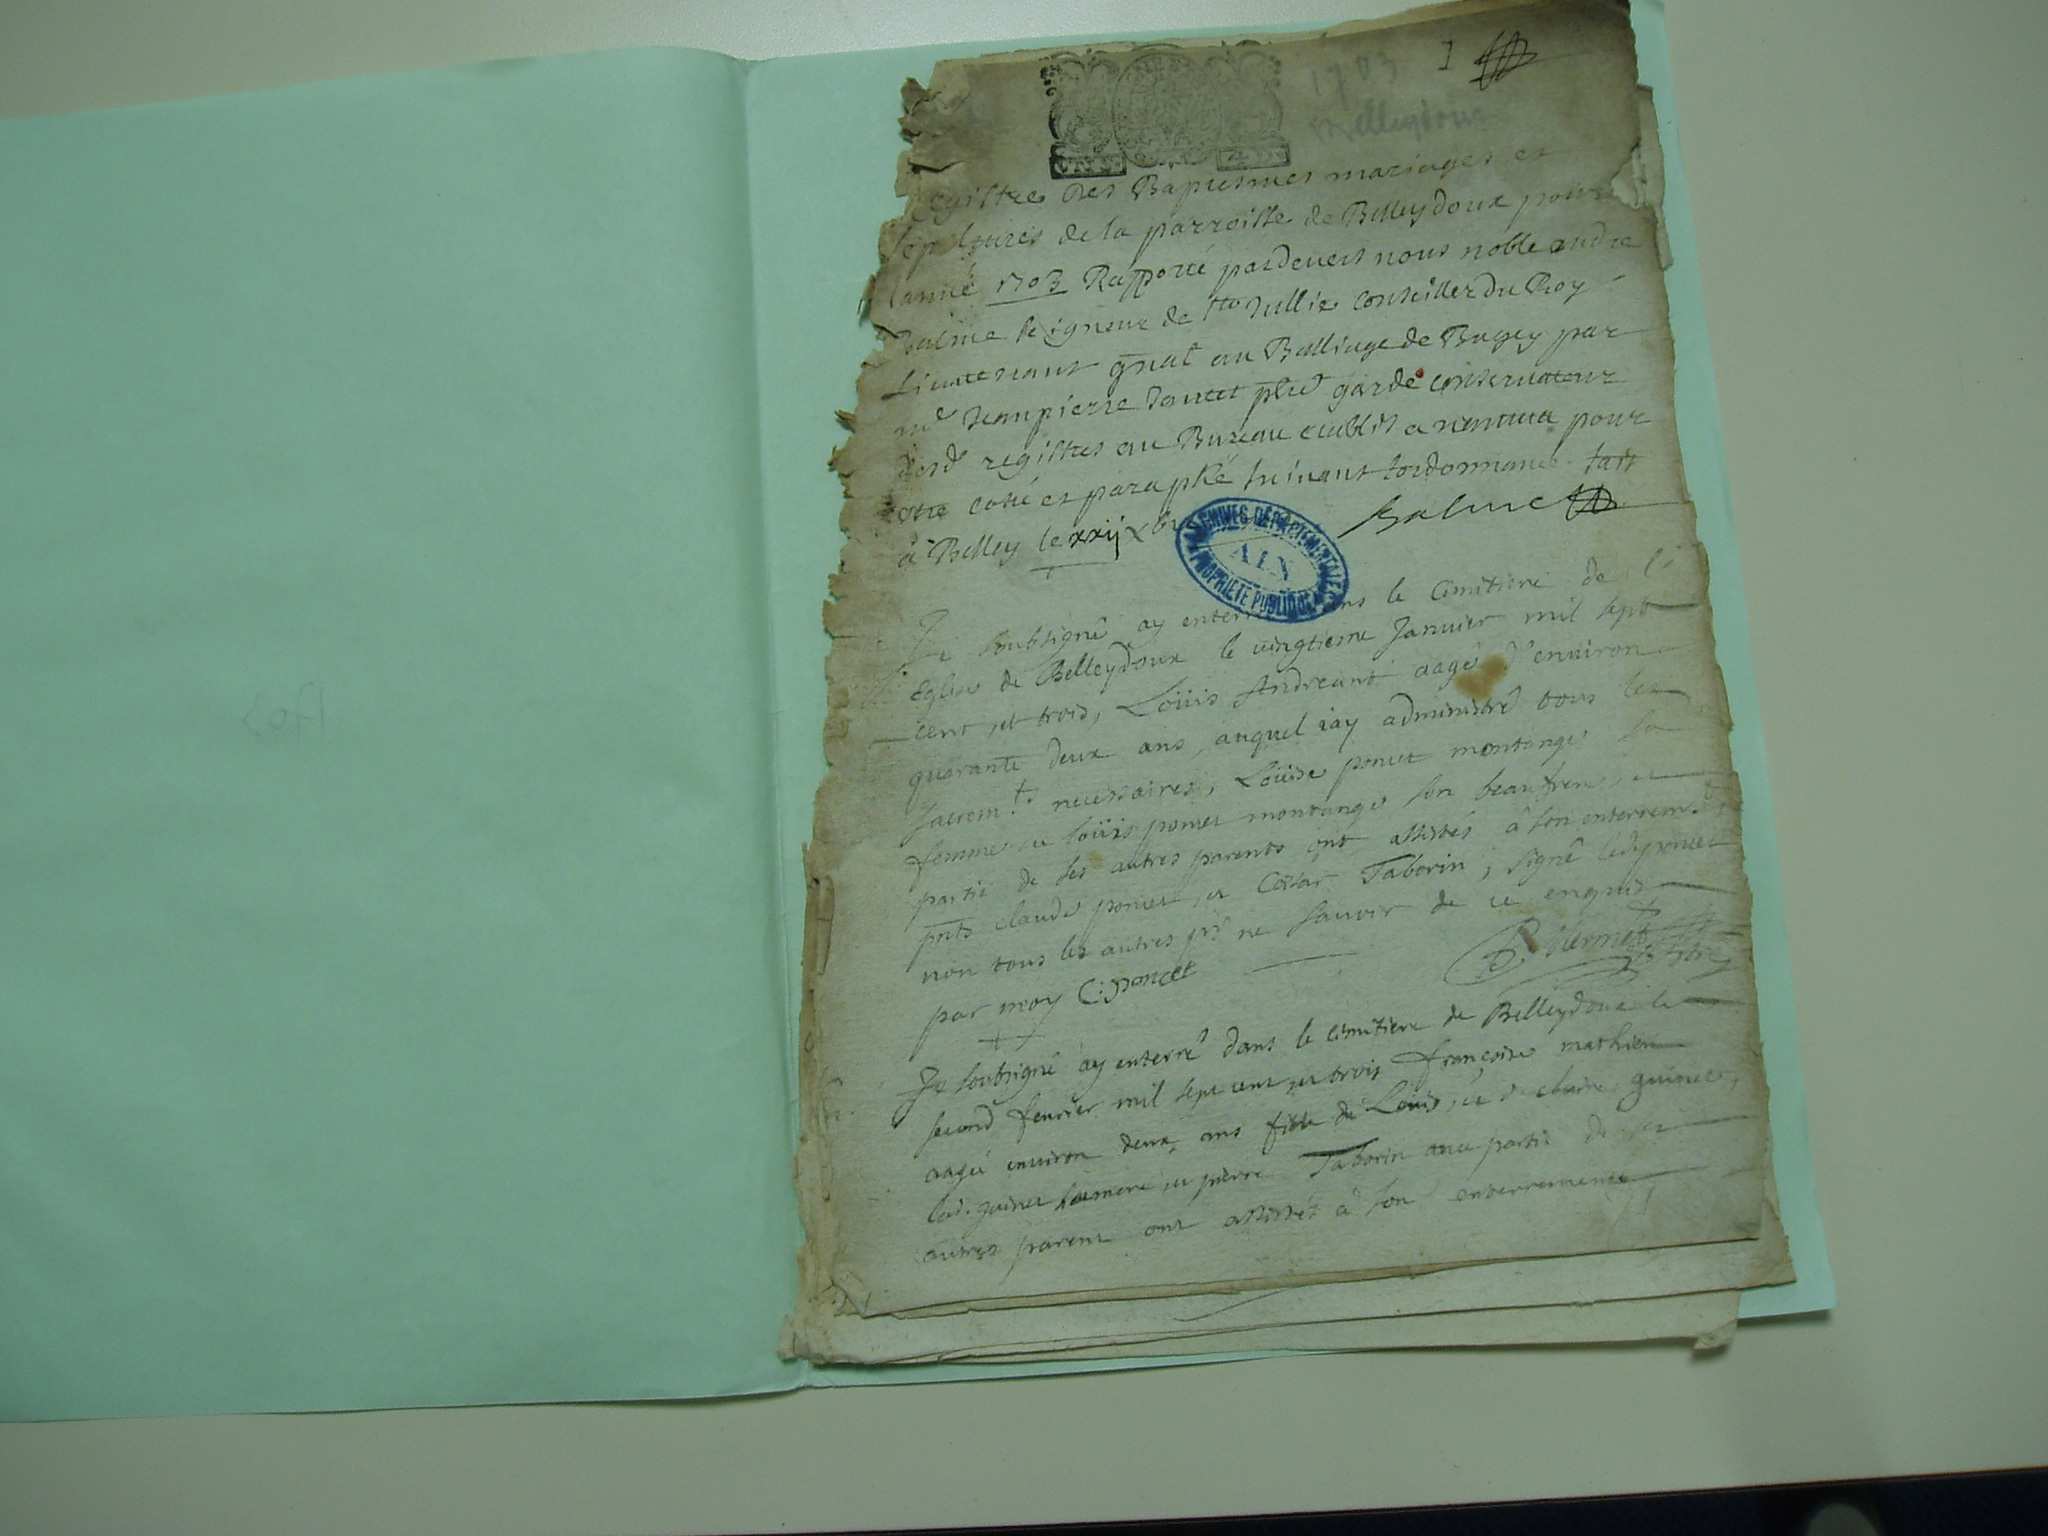 1703
1703 1
Belleydoux
Registre des Baptesmes mariages et
sepultures de la parroisse de Belleydoux pour
lanné 1703 Rapporté pardevers nous noble andre
Balme seigneur de Ste Jullie conseiller du Roy
Lieutenant gnal au Balliage de Bugey par
me Jean pierre garde conservateur
desd registres au Bureau establit a nantua pour
estre cotté et paraphé suivant lordonnance fait
à Belley le xxij Balme
ARCHIVES DÉPARTEMENTALES
AIN
PROPRIÉTÉ PUBLIQUE
Je soubsigné ay enterré dans le cimitiere de l'
Eglise de Belleydoux le vingtieme Janvier mil sept
cent et trois, Loüis Andreant aagé d'environ
quarante deux ans, auquel iay administré tous les
sacrem.ts necessaires, Loüise poncet montange sa
femme et loüis poncet montange son beaufrere, et
partie de ses autres parents ont assistés à son enterrem.t
pnts claude poncet et Cesar Taborin, signé led. poncet
non tous les autres ps ne sauoir de ce enquis
par moy C: poncet
Je soubsigné ay enterré dans le cimitiere de Belleydoux le
second feurier mil sept cent et trois françoise mathieu
aagée enuiron deux ans fille de Louis, et de claire guinet,
lad. guinet sa mere et pierre Taborin auec partie de ses
autres parent ont assistés à son enterrement